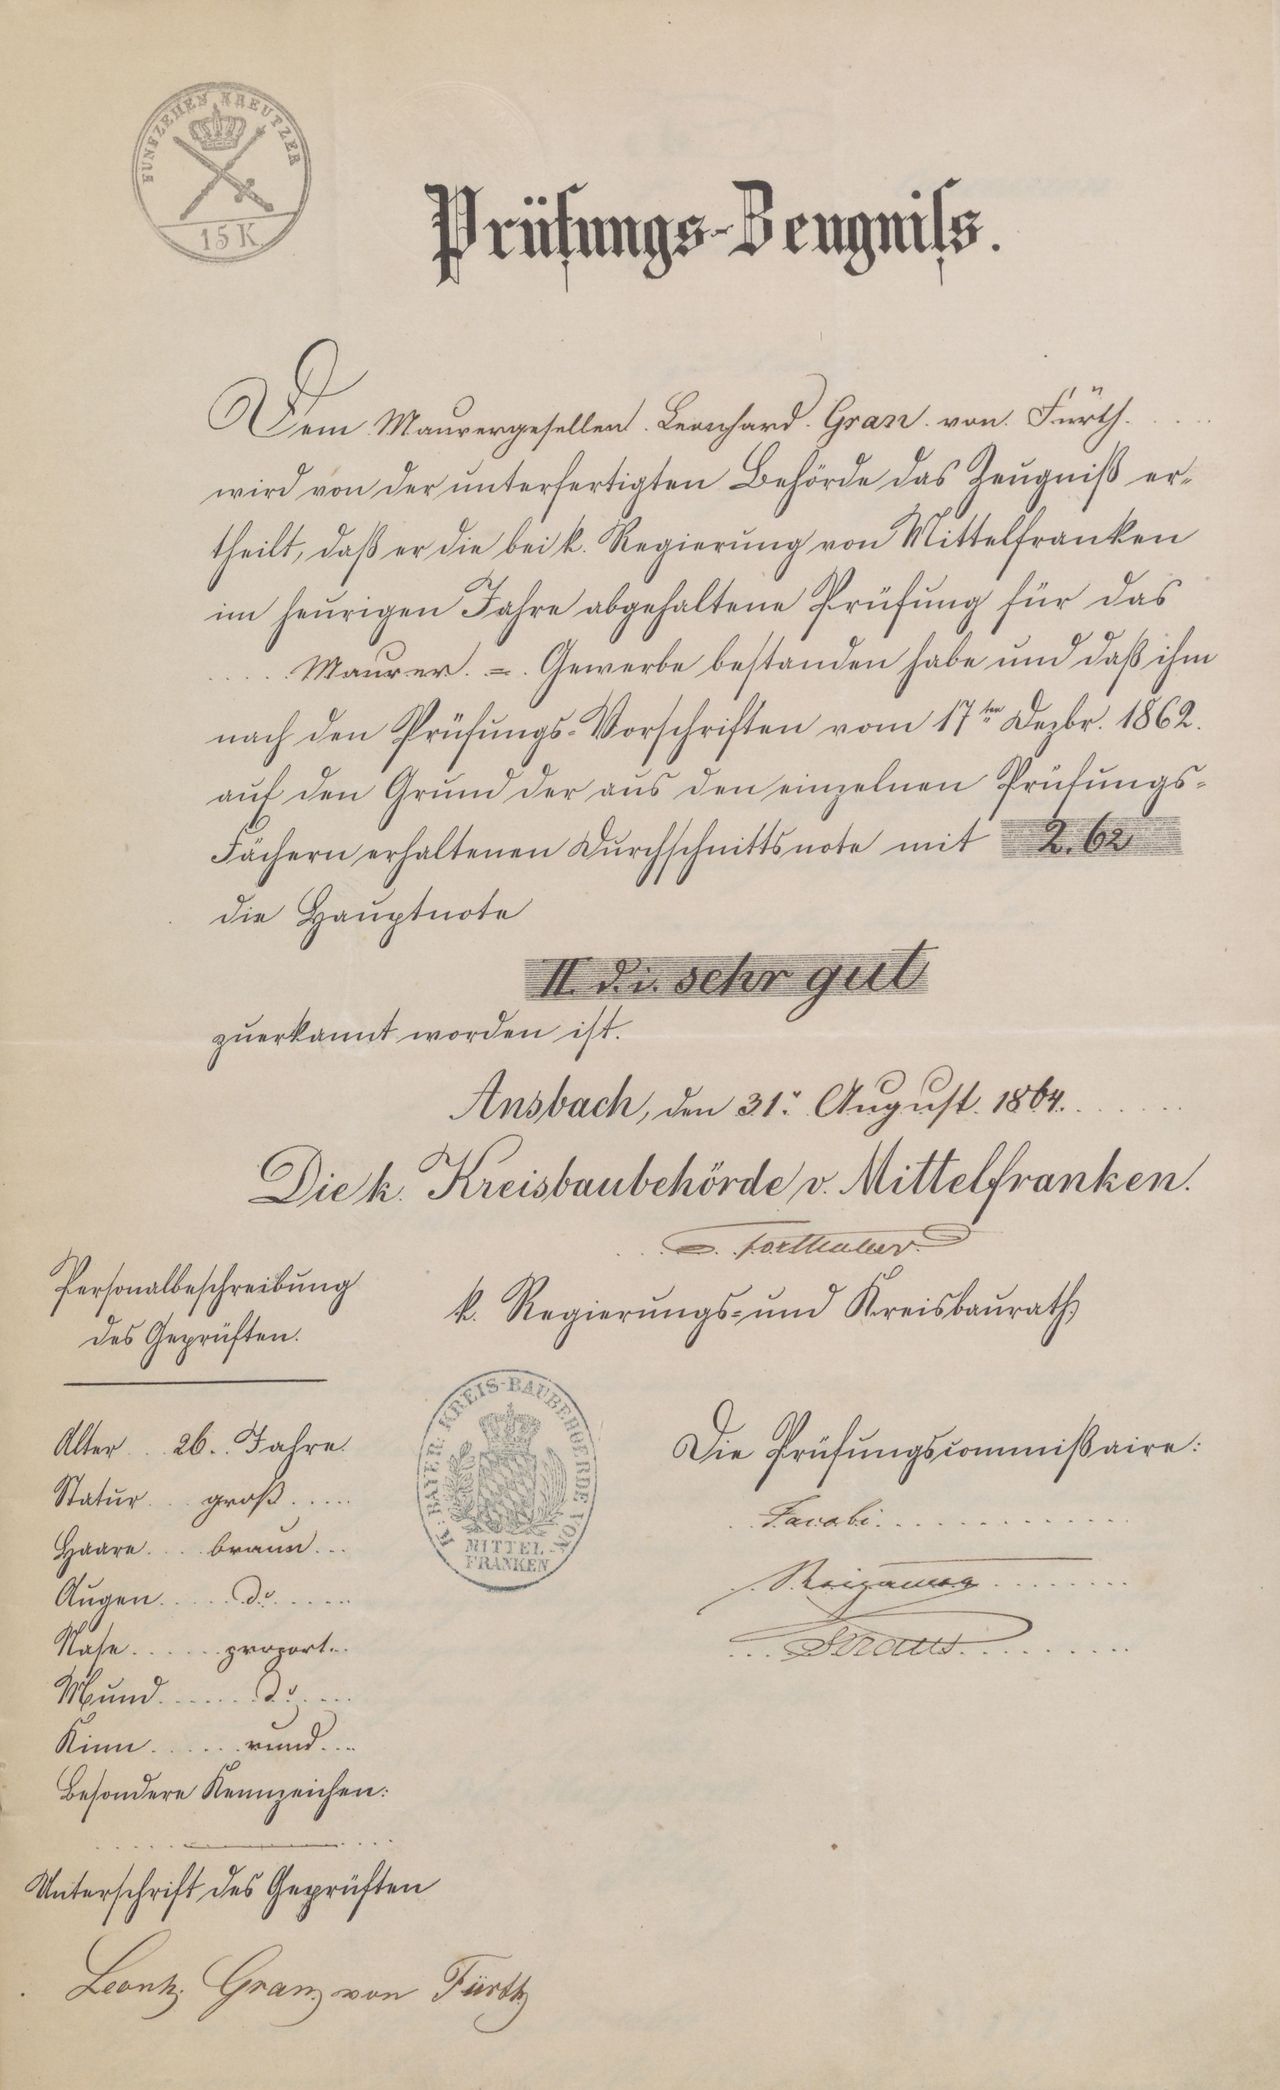 FUNFZEHEN KREUTZER
15 K
Prüfungs-Zeugniſs.
Dem Maurergesellen Leonhard Gran von Fürth.
wird von der unterfertigten Behörde das Zeugniß er-
theilt, daß er die bei k. Regierung von Mittelfranken
im heurigen Jahre abgehaltene Prüfung für das
Maurer = Gewerbe bestanden habe und daß ihm
nach den Prüfungs-Vorschriften vom 17ten Dezbr. 1862.
auf den Grund der aus den einzelnen Prüfungs-
Fächern erhaltenen Durchschnittsnote mit 2.62
die Hauptnote
II. d. i. sehr gut
zuerkannt worden ist.
Ansbach, den 31. August 1864.
Die k. Kreisbaubehörde v. Mittelfranken.
k. Regierungs- und Kreisbaurath
Personalbeschreibung
des Geprüften.
Alter 26. Jahre.
Statur groß
Haare braun
Augen do
Nase proport.
Mund do
Kinn rund
Besondere Kennzeichen:
Unterschrift des Geprüften
Leonh. Gran von Fürth
K. BAYER. KREIS-BAUBEHOERDE VON
MITTEL-
FRANKEN
Die Prüfungscommißaire:
Jacobi
Straus